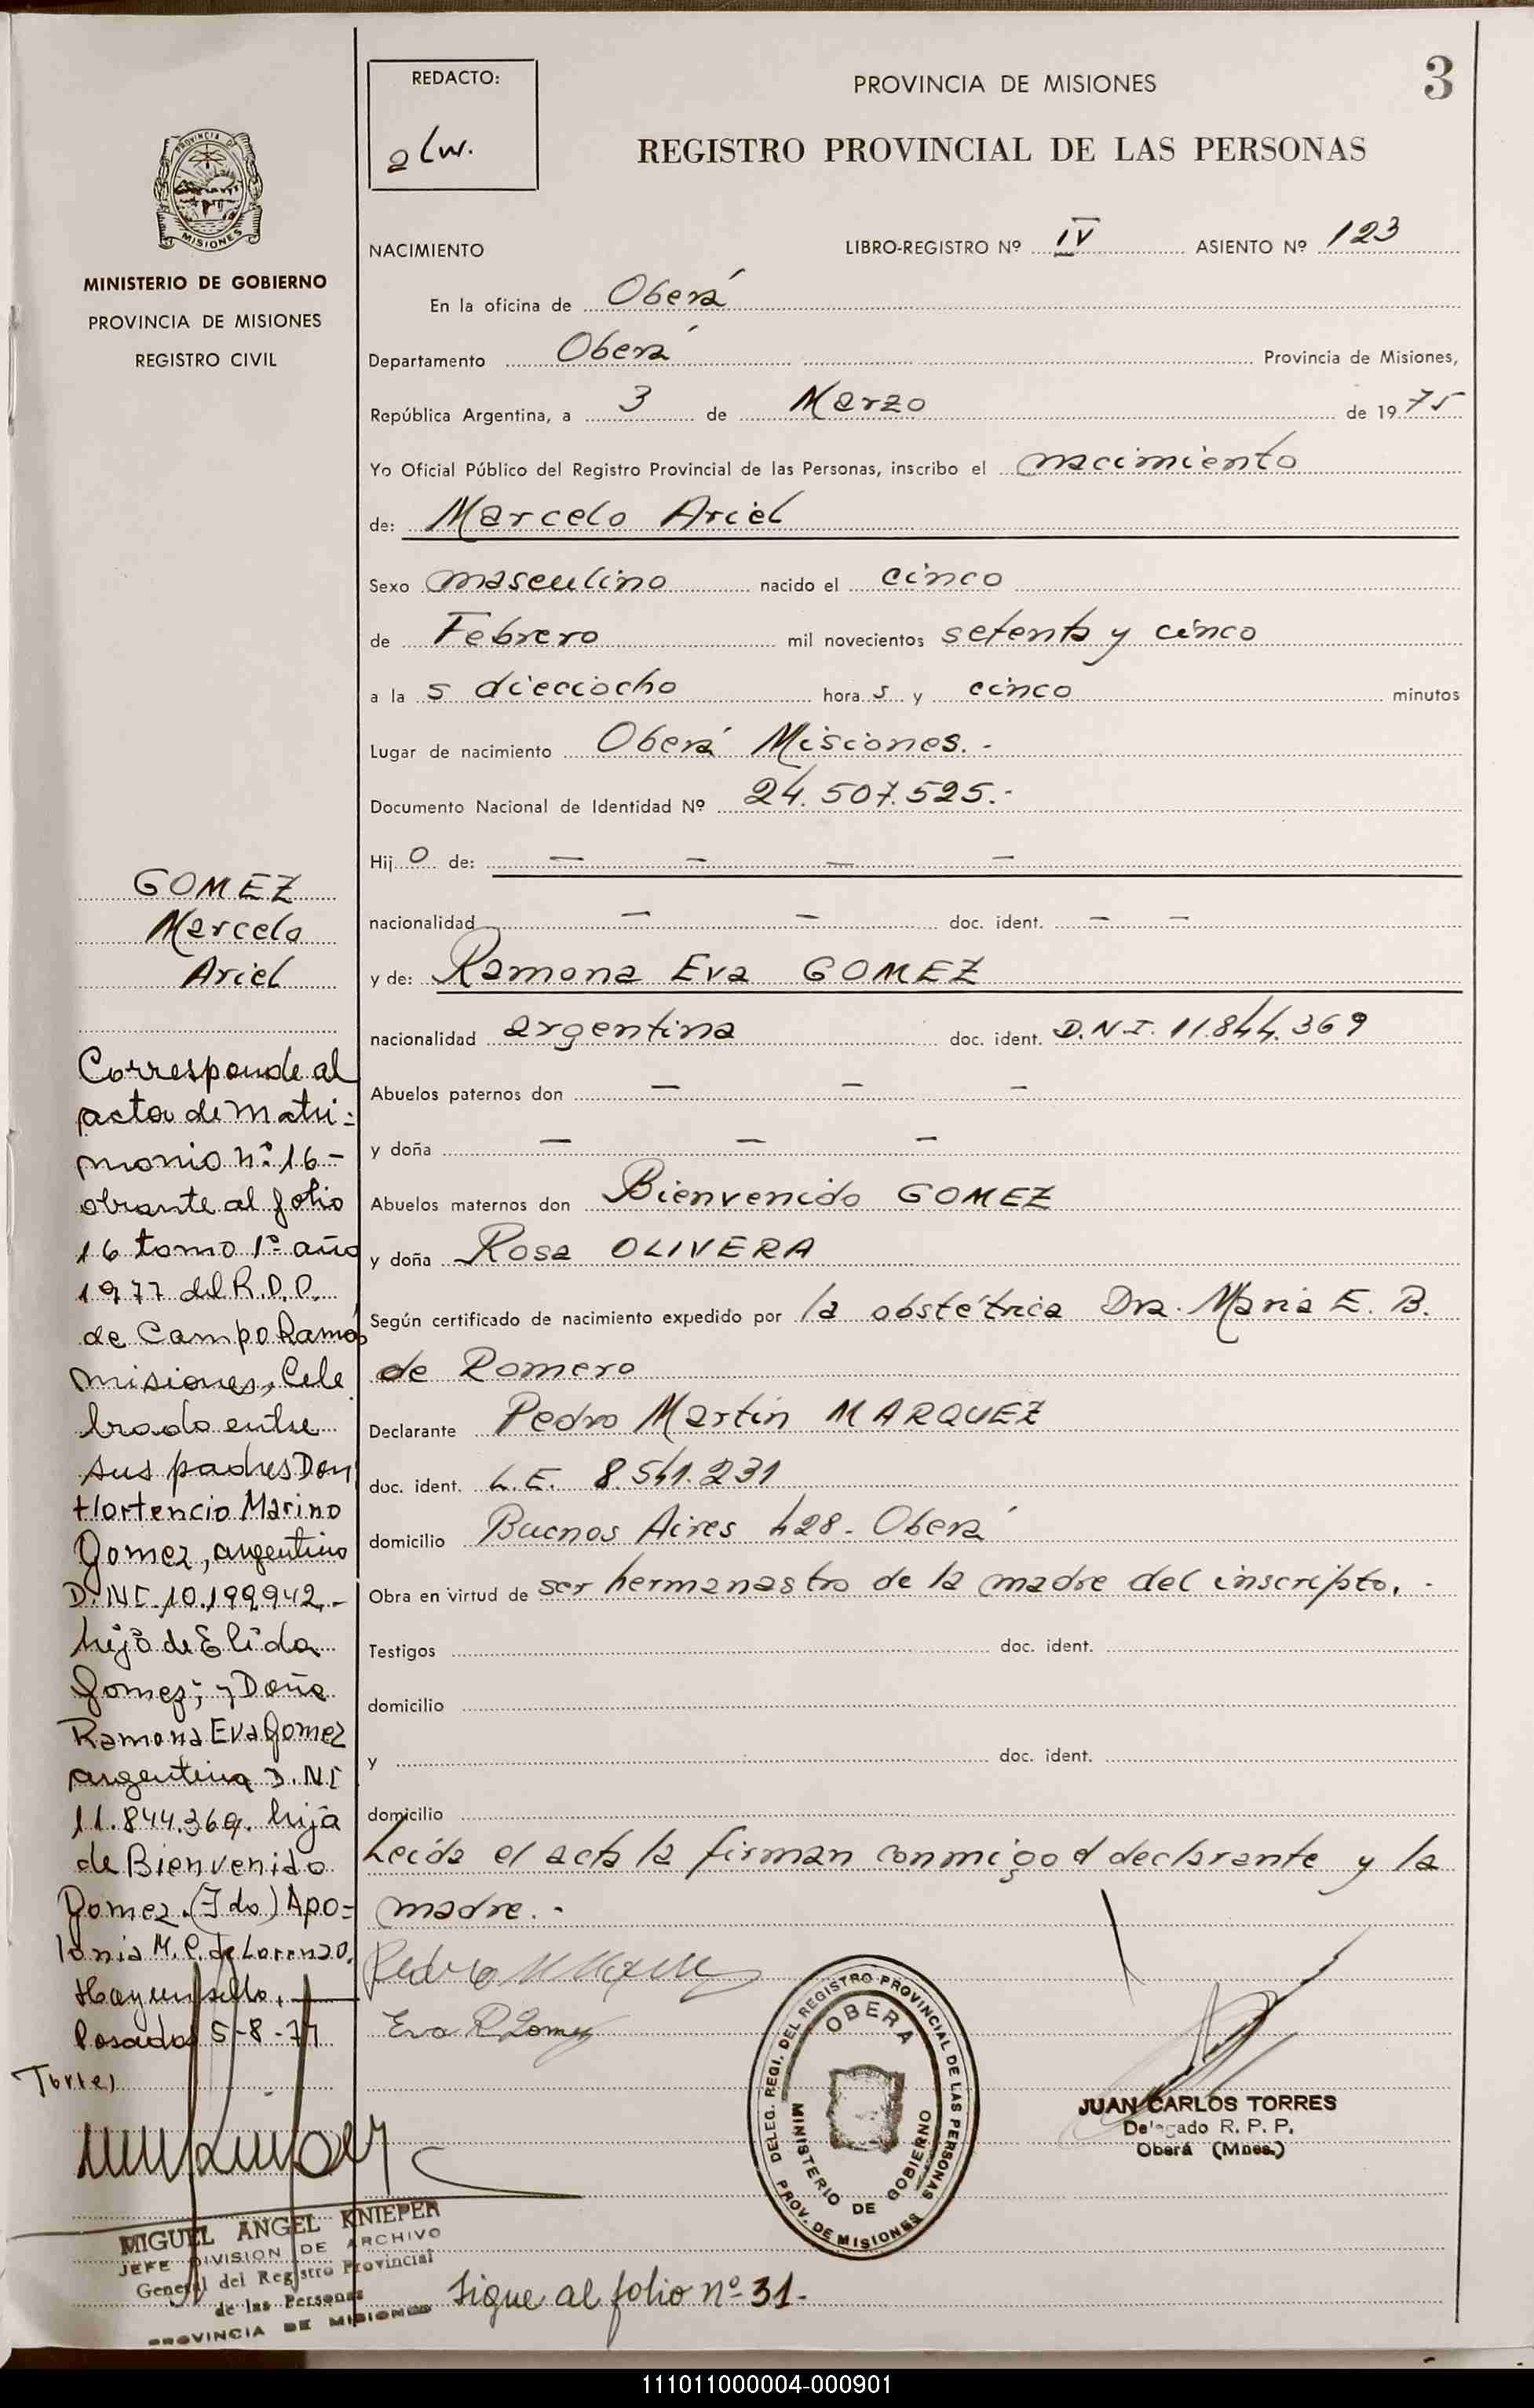 REDACTO:
PROVINCIA DE MISIONES
3
REGISTRO PROVINCIAL DE LAS PERSONAS
PROVINCIA DE
MISIONES
MINISTERIO DE GOBIERNO
PROVINCIA DE MISIONES
REGISTRO CIVIL
NACIMIENTO LIBRO-REGISTRO Nº IV ASIENTO Nº 123
En la oficina de Oberá
Departamento Oberá Provincia de Misiones,
República Argentina, a 3 de Marzo de 1975
Yo Oficial Público del Registro Provincial de las Personas, inscribo el nacimiento
de: Marcelo Ariel
Sexo masculino nacido el cinco
de Febrero mil novecientos setenta y cinco
a la s dieciocho hora s y cinco minutos
Lugar de nacimiento Oberá Misiones.-
Documento Nacional de Identidad Nº 24.507.525.-
Hij o de: — — — —
nacionalidad — — doc. ident. — —
y de: Ramona Eva GOMEZ
nacionalidad argentina doc. ident. D.N.I. 11.844.369
Abuelos paternos don — — —
y doña — — —
Abuelos maternos don Bienvenido GOMEZ
y doña Rosa OLIVERA
Según certificado de nacimiento expedido por la obstétrica Dra. Maria E. B.
de Romero
Declarante Pedro Martin MARQUEZ
doc. ident. L.E. 8.541.231
domicilio Buenos Aires 428 - Oberá
Obra en virtud de ser hermanastro de la madre del inscripto. -
Testigos doc. ident.
domicilio
y doc. ident.
domicilio
Leida el acta la firman conmigo el declarante y la
madre. -
Eva R Gomez
GOMEZ
Marcelo
Ariel
Corresponde al
acta de matri-
monio nº 16-
obrante al folio
16 tomo 1º año
1977 del R.P.P.
de Campo Ramón
misiones, Cele
brado entre
sus padres Don
Hortencio Marino
Gomez, argentino
D.NI. 10.199.942.-
hijo de Elida
Gomez; y Doña
Ramona Eva Gomez
argentina D.NI
11.844.369. hija
de Bienvenido
Gomez. (Fdo) Apo-
lonia M. P. de Lorenzo.
Hay un sello.
Posadas 5-8-77
Torres
MIGUEL ANGEL KNIEPER
JEFE DIVISION DE ARCHIVO
General del Registro Provincial
de las Personas
PROVINCIA DE MISIONES
DELEG. REGI. DEL REGISTRO PROVINCIAL DE LAS PERSONAS
OBERA
MINISTERIO DE GOBIERNO
PROV. DE MISIONES
JUAN CARLOS TORRES
Delegado R. P. P.
Oberá (Mnes.)
Sigue al folio nº 31-
111011000004-000901